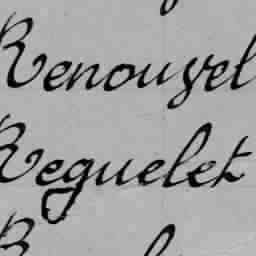 Renouvel
Reguelet